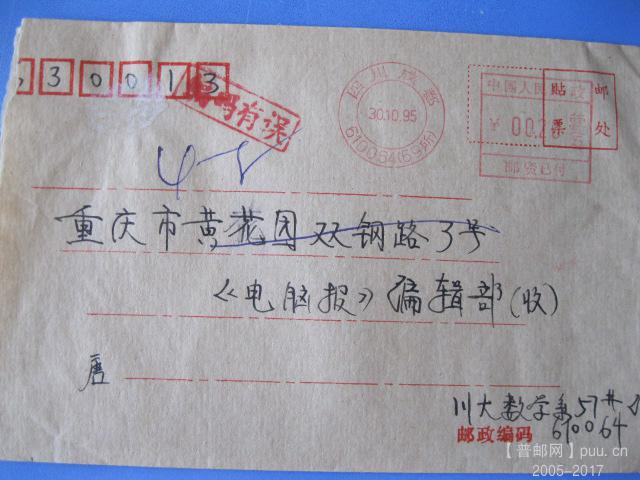 630013
号码有误
四川成都
30.10.95
610064(69所)
中国人民
邮政
¥ 00.2
邮资已付
贴邮
票处
重庆市黄花园双钢路3号
《电脑报》编辑部(收)
唐
川大数学系57#
邮政编码 610064
【普邮网】puu.cn
2005-2017